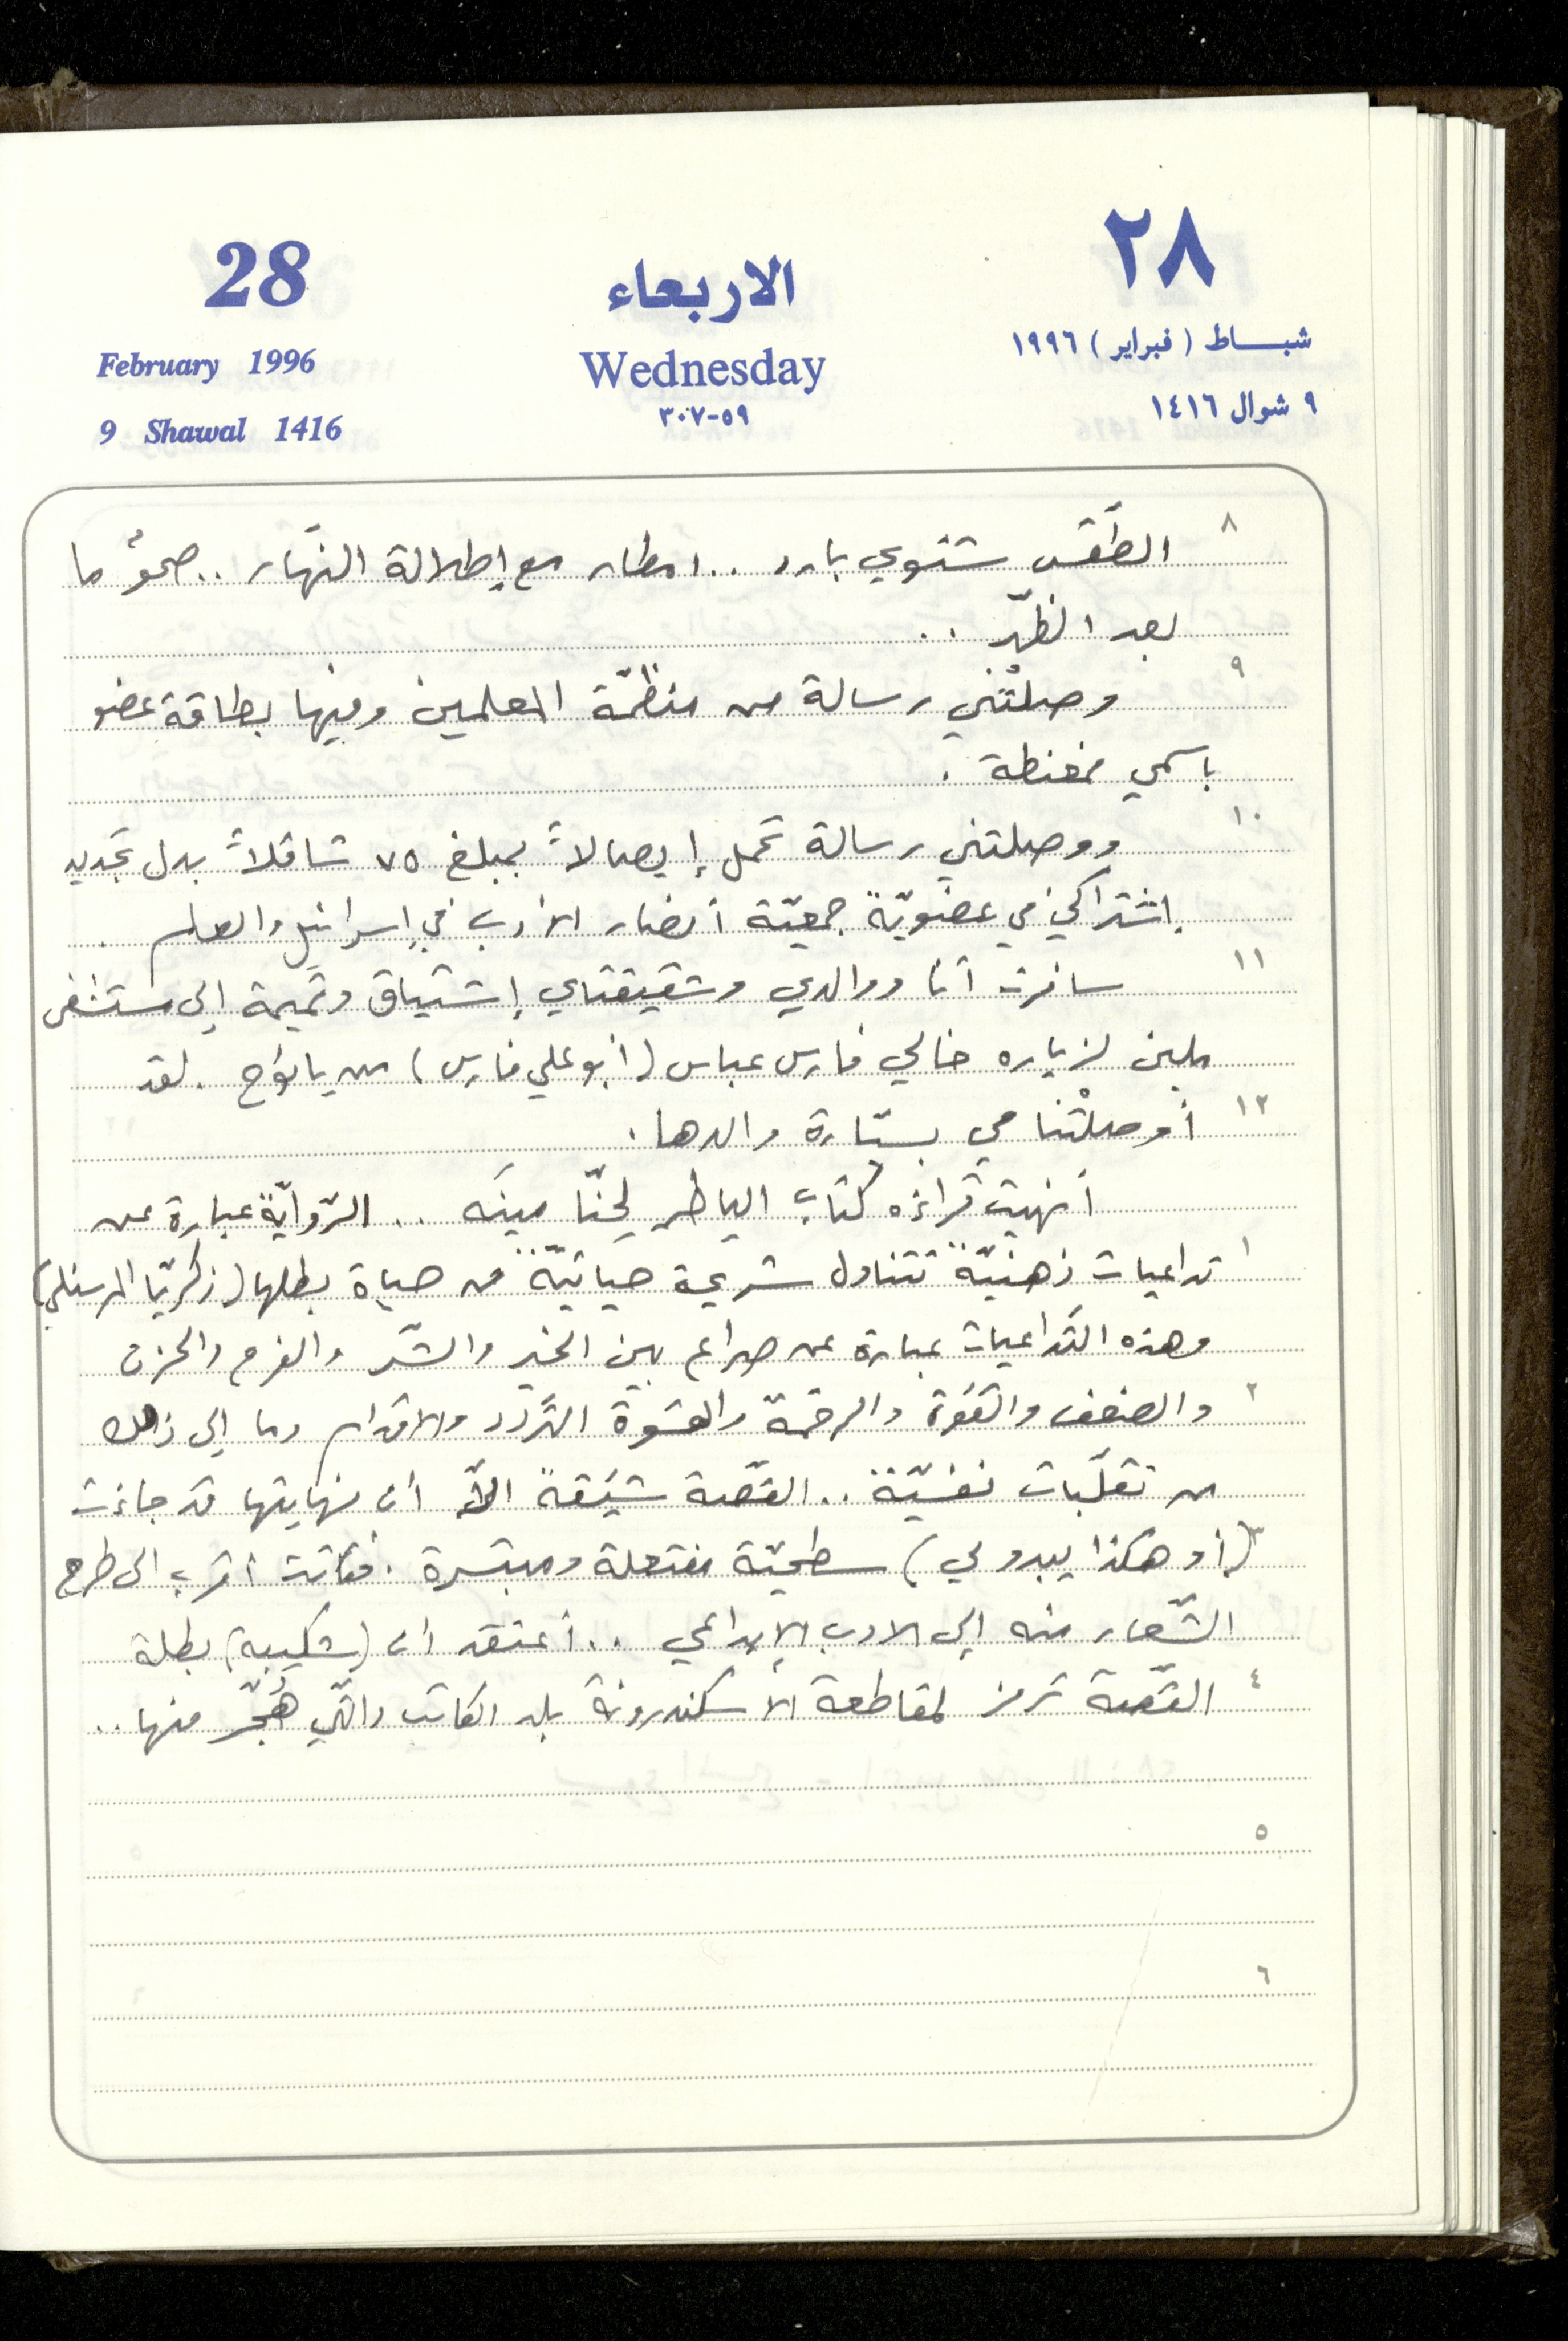 28 الاربعاء ٢٨
February 1996 Wednesday شباط (فبراير) ١٩٩٦
9 Shawal 1416 ٣٠٧-٥٩ ٩ شوال ١٤١٦
٨ الطّقس شتوي بارد .. امطار مع إطلالة النهّار .. صحوٌ ما
بعد الظّهر ..
٩ وصلتْني رسالة من منظّمة المعلمين وفيها بطاقة عضو
باسمي ممغنطة .
١٠ ووصلتني رسالة تحمل إيصالاً بمبلغ ٧٥ شاقلاً بدل تجديد
إشتراكي في عضويّة جمعيّة أنصار الأدب في إسرائيل والعالم .
١١ سافرت أنا ووالدي وشقيقتاي إشتياق وتميمة إلى مستشفى
لزياره خالي فارس عباس (أبو علي فارس) من يانوح . لقد
١٢ أوصلتْنا مي بسيّارة والدها .
أنهيت قراءه كتاب الياطر لحنّا مينَه .. الرّوايّة عبارة عن
١ تداعيات ذهنيّة تتناول شريحة حياتيّة من حياة بطلها (زكريّا المرسنلي)
وهذه التّداعيات عبارة عن صراع بين الخير والشّر والفرح والحزن
٢ والضعف والقوّة والرحمة والقسوة التردّد والاقدام وما إلى ذلك
من تقلّبات نفسيّة .. القصّة شيّقة الاّ أن نهايتها قد جاءت
٣ (أو هكذا يبدو لي) سطحيّة مفتعلة ومبتسرة . فكانت أقرب الى طرح
الشّعار منه إلى الادب الإبداعي .. أعتقد أن (شكيبه) بطلة
٤ القصّة ترمز لمقاطعة الأسكندرونة بلد الكاتب والتّي هُجّر منها ..
٥
٦